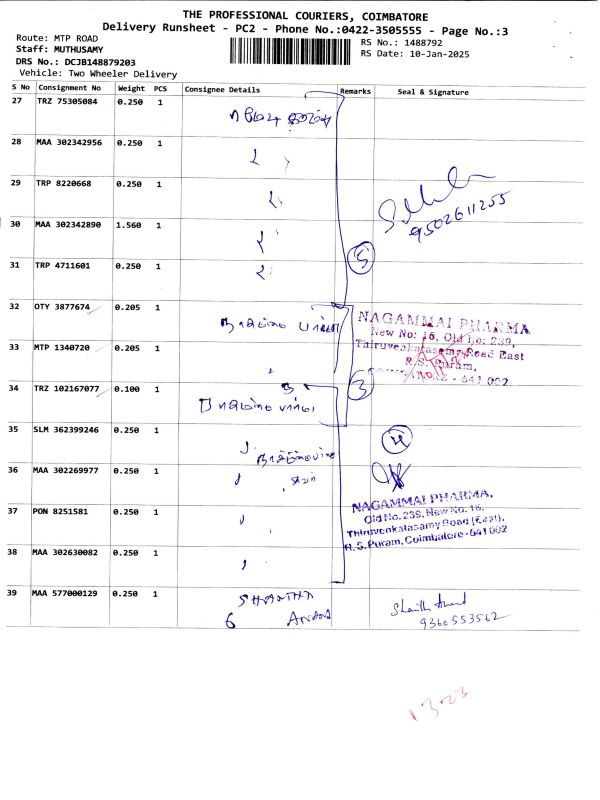 THE PROFESSIONAL COURIERS, COIMBATORE
Delivery Runsheet - PC2 - Phone No.:0422-3505555 - Page No.:3
Route: MTP ROAD
Staff: MUTHUSAMY
DRS No.: DCJB148879203
Vehicle: Two Wheeler Delivery
RS No.: 1488792
RS Date: 10-Jan-2025
S No Consignment No Weight PCS Consignee Details Remarks Seal & Signature
27 TRZ 75305084 0.250 1
28 MAA 302342956 0.250 1
29 TRP 8220668 0.250 1
9502611255
30 MAA 302342890 1.560 1
5
31 TRP 4711601 0.250 1
32 OTY 3877674 0.205 1
NAGAMMAI PHARMA
New No: 16, Old No: 239,
33 MTP 1340720 0.205 1
Thiruvenkatasamy Road East
R.S. Puram,
- 641 002
34 TRZ 102167077 0.100 1
3
35 SLM 362399246 0.250 1
36 MAA 302269977 0.250 1
37 PON 8251581 0.250 1
NAGAMMAI PHARMA,
Old No. 239, New No. 16,
Thiruvenkatasamy Road (East),
R.S. Puram, Coimbatore - 641 002
38 MAA 302630082 0.250 1
39 MAA 577000129 0.250 1
6
9360553562
1323